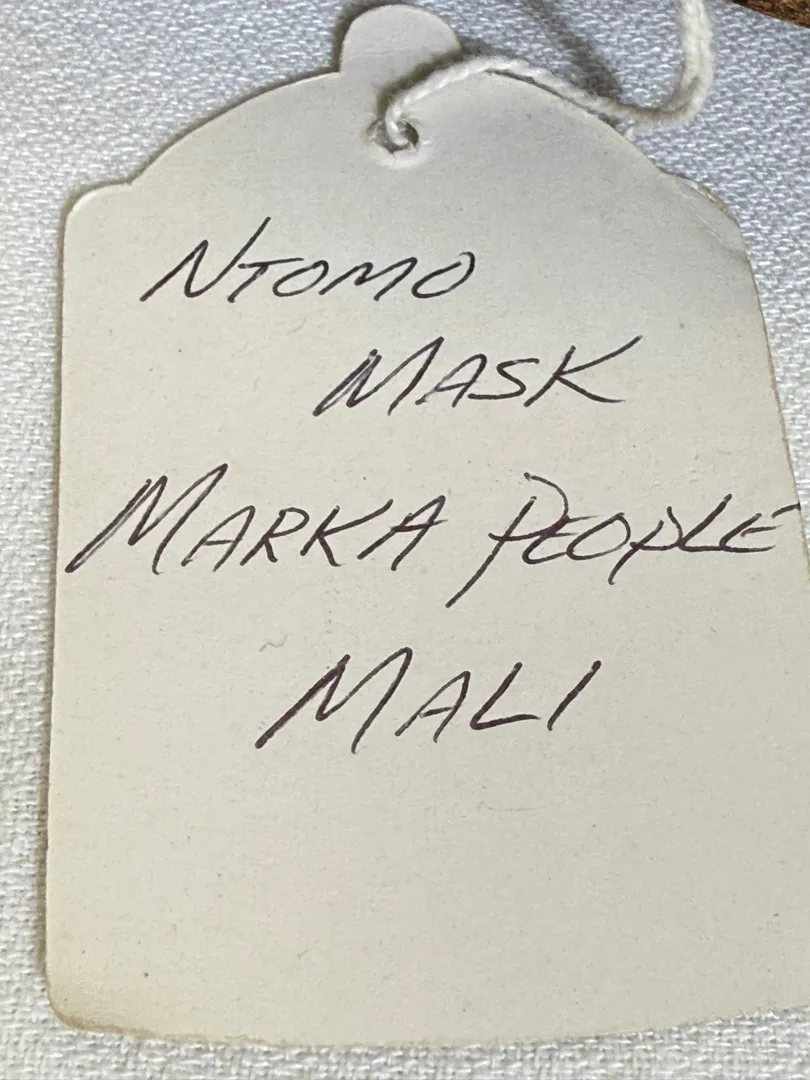 NTOMO
MASK
MARKA PEOPLE
MALI